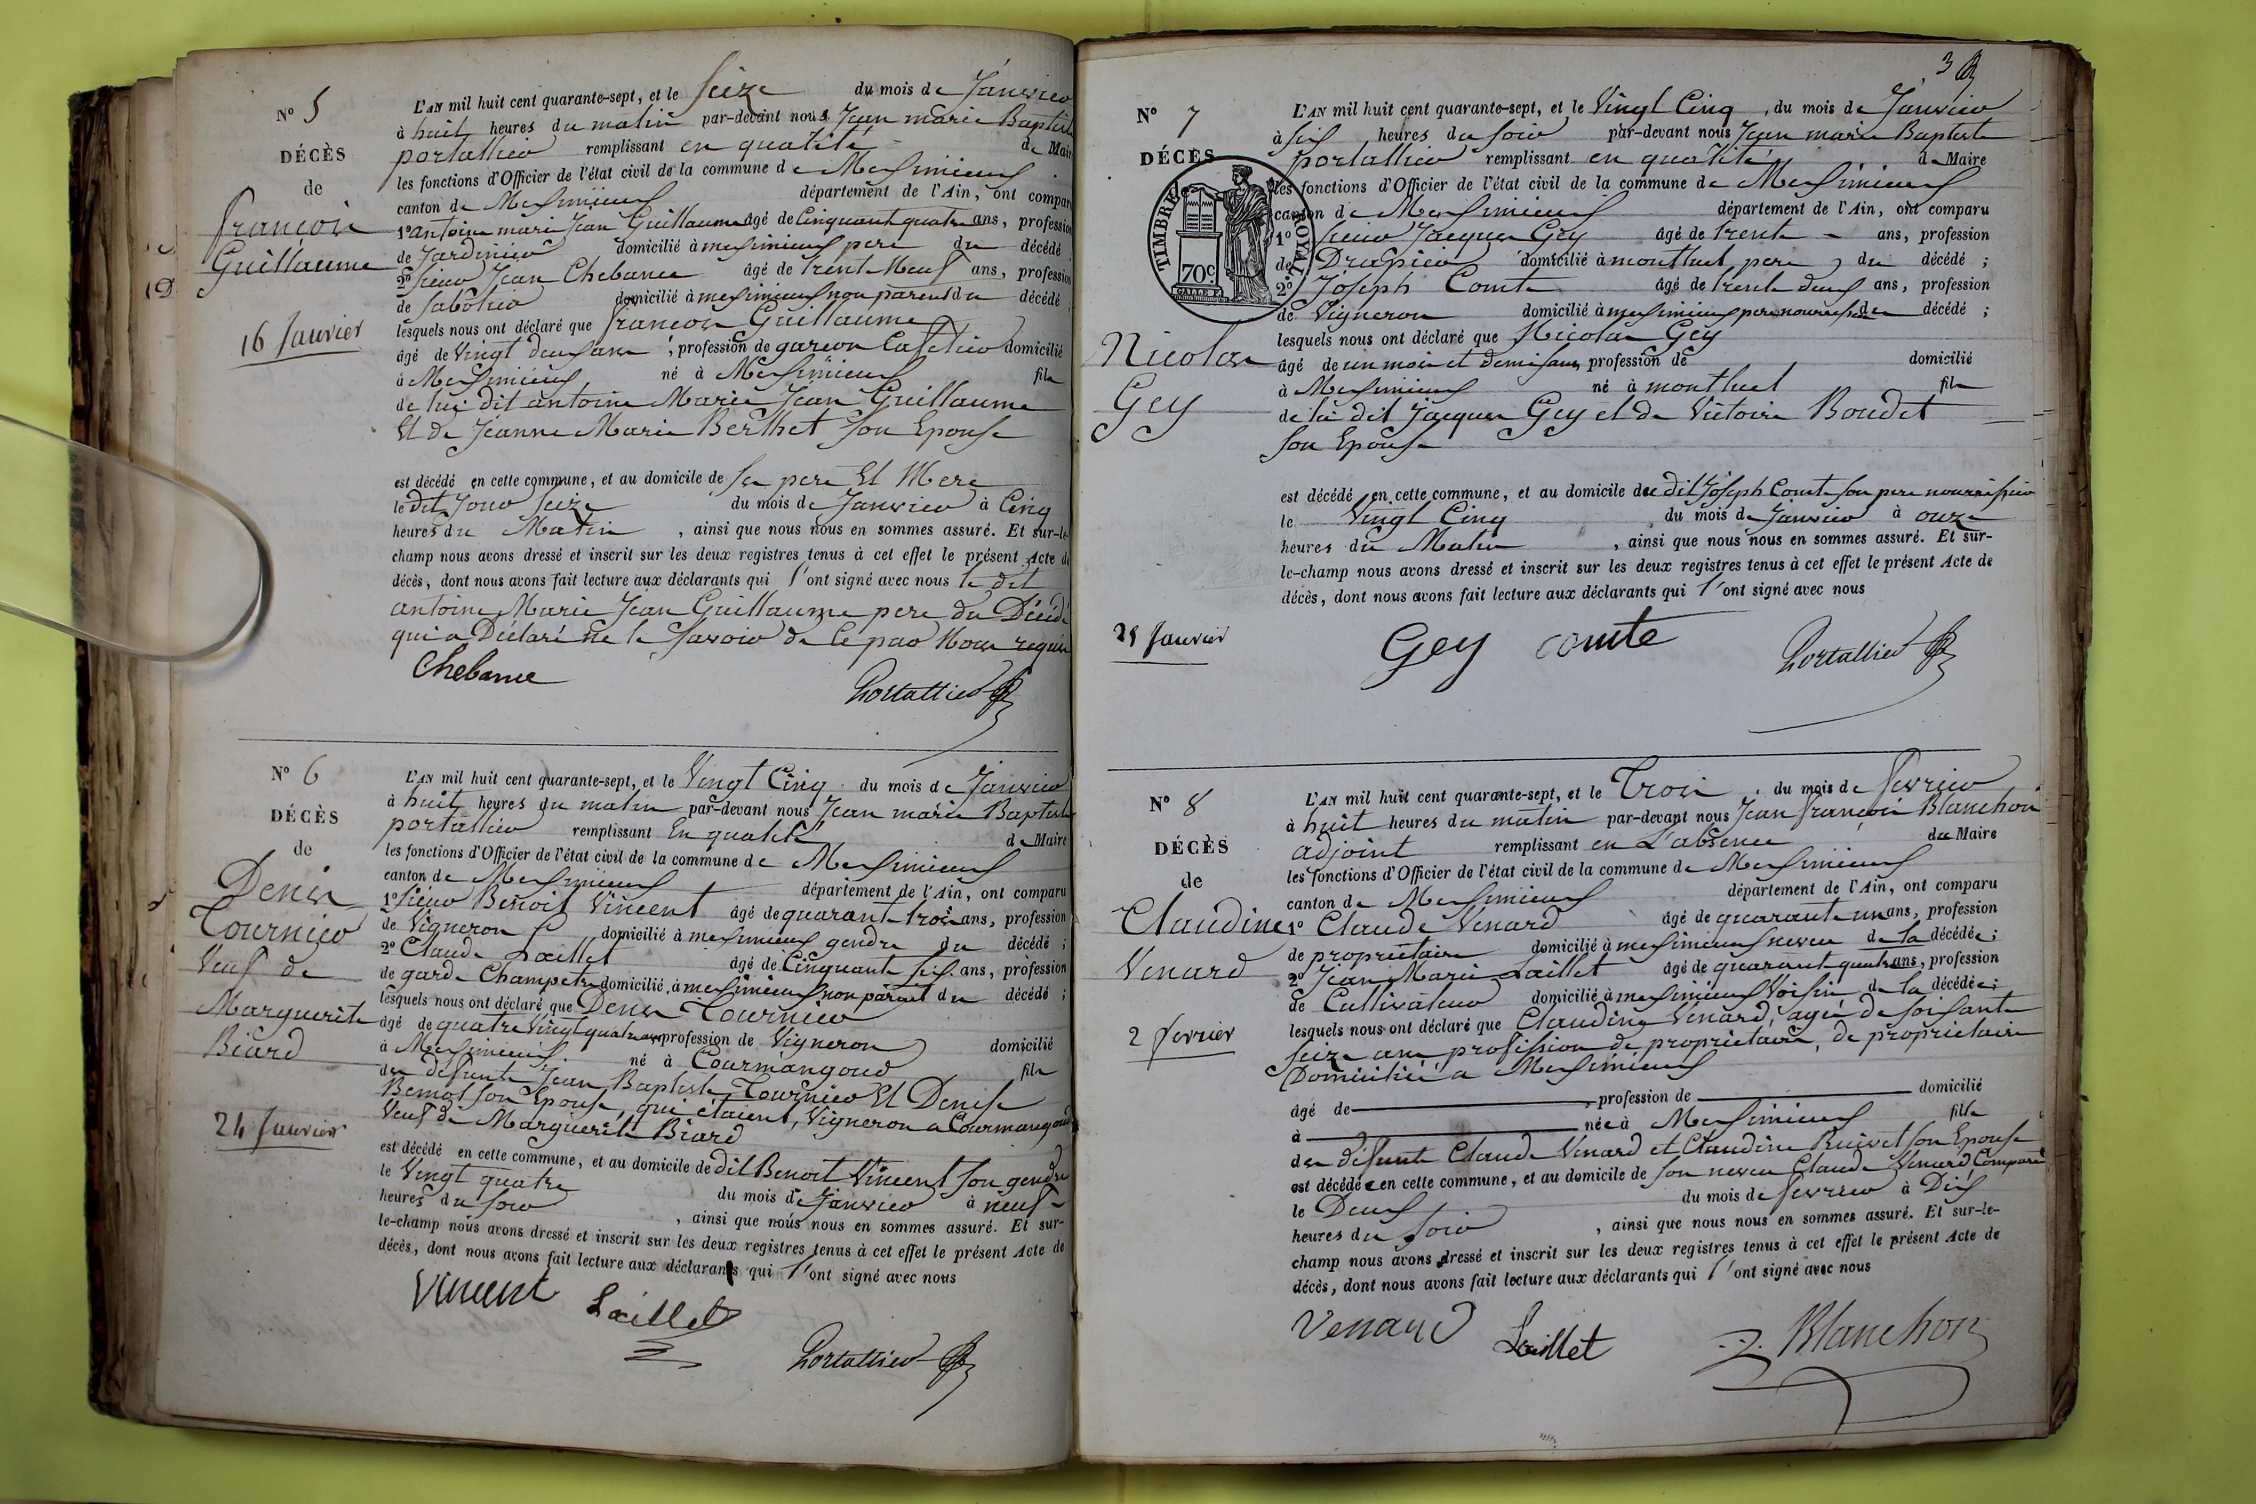 N° 5
DÉCÈS
de
françois
Guillaume
16 Janvier
L'AN mil huit cent quarante-sept, et le Seize du mois de Janvier
à huit heures du matin par-devant nous Jean marie Baptiste
portallier remplissant en qualité de Maire
les fonctions d'Officier de l'état civil de la commune de Meximieux
canton de Meximieux département de l'Ain, ont comparu
1° antoine marie Jean Guillaume âgé de Cinquante quatre ans, profession
de Jardinier domicilié à meximieux pere du décédé
2° Sieur Jean Chebance âgé de trente Neuf ans, profession
de Sabotier domicilié à meximieux non parent du décédé ;
lesquels nous ont déclaré que françois Guillaume
âgé de Vingt deux ans, profession de garçon Caffetier domicilié
à Meximieux né à Meximieux fils
de lui dit antoine Marie Jean Guillaume
Et de Jeanne Marie Berthet son Epouse
est décédé en cette commune, et au domicile de Ses pere Et Mere
le dit Jour Seize du mois de Janvier à Cinq
heures du Matin, ainsi que nous nous en sommes assuré. Et sur-le-
champ nous avons dressé et inscrit sur les deux registres tenus à cet effet le présent Acte de
décès, dont nous avons fait lecture aux déclarants qui l'ont signé avec nous le dit
antoine Marie Jean Guillaume pere du Décédé
qui a Déclaré ne le Savoir de Ce par Nous requis
Chebance
Portallier
N° 6
DÉCÈS
de
Denis
Tournier
Veuf de
Marguerite
Biard
24 Janvier
L'AN mil huit cent quarante-sept, et le Vingt Cinq du mois de Janvier
à huit heures du matin par-devant nous Jean marie Baptiste
portallier remplissant En qualité de Maire
les fonctions d'Officier de l'état civil de la commune de Meximieux
canton de Meximieux département de l'Ain, ont comparu
1° Sieur Benoit Vincent âgé de quarante trois ans, profession
de Vigneron domicilié à meximieux gendre du décédé ;
2° Claude Laillet âgé de Cinquante Six ans, profession
de garde Champetre domicilié à meximieux non parent du décédé ;
lesquels nous ont déclaré que Denis Tournier
âgé de quatre Vingt quatre ans profession de Vigneron domicilié
à Meximieux né à Courmangoud fils
des défunts Jean Baptiste Tournier Et Denise
son Epouse, qui étaient, Vigneron a Courmangoud
Veuf de Marguerite Biard
est décédé en cette commune, et au domicile de dit Benoit Vincent son gendre
le Vingt quatre du mois de Janvier à neuf
heures du soir, ainsi que nous nous en sommes assuré. Et sur-
le-champ nous avons dressé et inscrit sur les deux registres tenus à cet effet le présent Acte de
décès, dont nous avons fait lecture aux déclarants qui l'ont signé avec nous
Vincent Laillet
Portallier
3
N° 7
DÉCÈS
TIMBRE ROYAL
70c
Nicolas
Gey
25 Janvier
L'AN mil huit cent quarante-sept, et le Vingt Cinq, du mois de Janvier
à Six heures du soir par-devant nous Jean marie Baptiste
portallier remplissant en qualité de Maire
les fonctions d'Officier de l'état civil de la commune de Meximieux
canton de Meximieux département de l'Ain, ont comparu
1° Sieur Jacques Gey âgé de trente ans, profession
de Drapier domicilié à montluel pere du décédé ;
2° Joseph Comte âgé de trente deux ans, profession
de Vigneron domicilié à meximieux pere nourricier du décédé ;
lesquels nous ont déclaré que Nicolas Gey
âgé de un mois et demi sans profession de domicilié
à Meximieux né à montluel fils
de lui dit Jacques Gey et de Victoire Boudet
son Epouse
est décédé en cette commune, et au domicile du dit Joseph Comte son pere nourricier
le Vingt Cinq du mois de Janvier à onze
heures du Matin, ainsi que nous nous en sommes assuré. Et sur-
le-champ nous avons dressé et inscrit sur les deux registres tenus à cet effet le présent Acte de
décès, dont nous avons fait lecture aux déclarants qui l'ont signé avec nous
Gey comte Portallier
N° 8
DÉCÈS
de
Claudine
Venard
2 fevrier
L'AN mil huit cent quarante-sept, et le Trois du mois de fevrier
à huit heures du matin par-devant nous Jean françois Blanchon
adjoint remplissant en L'absence du Maire
les fonctions d'Officier de l'état civil de la commune de Meximieux
canton de Meximieux département de l'Ain, ont comparu
1° Claude Venard âgé de quarante un ans, profession
de propriétaire domicilié à meximieux neveu de la décédée ;
2° Jean Marie Laillet âgé de quarante quatre ans, profession
de Cultivateur domicilié à meximieux Voisin de la décédée ;
lesquels nous ont déclaré que Claudine Venard, agée de soixante
Seize ans profession de proprietaire, de proprietaire
Domiciliée a Meximieux
âgé de profession de domicilié
à née à Meximieux fille
des défunts Claude Venard et Claudine Ruivet son Epouse
est décédée en cette commune, et au domicile de son neveu Claude Venard Comparu
le Deux du mois de fevrier à Dix
heures du soir, ainsi que nous nous en sommes assuré. Et sur-le-
champ nous avons dressé et inscrit sur les deux registres tenus à cet effet le présent Acte de
décès, dont nous avons fait lecture aux déclarants qui l'ont signé avec nous
Venard Laillet Blanchon